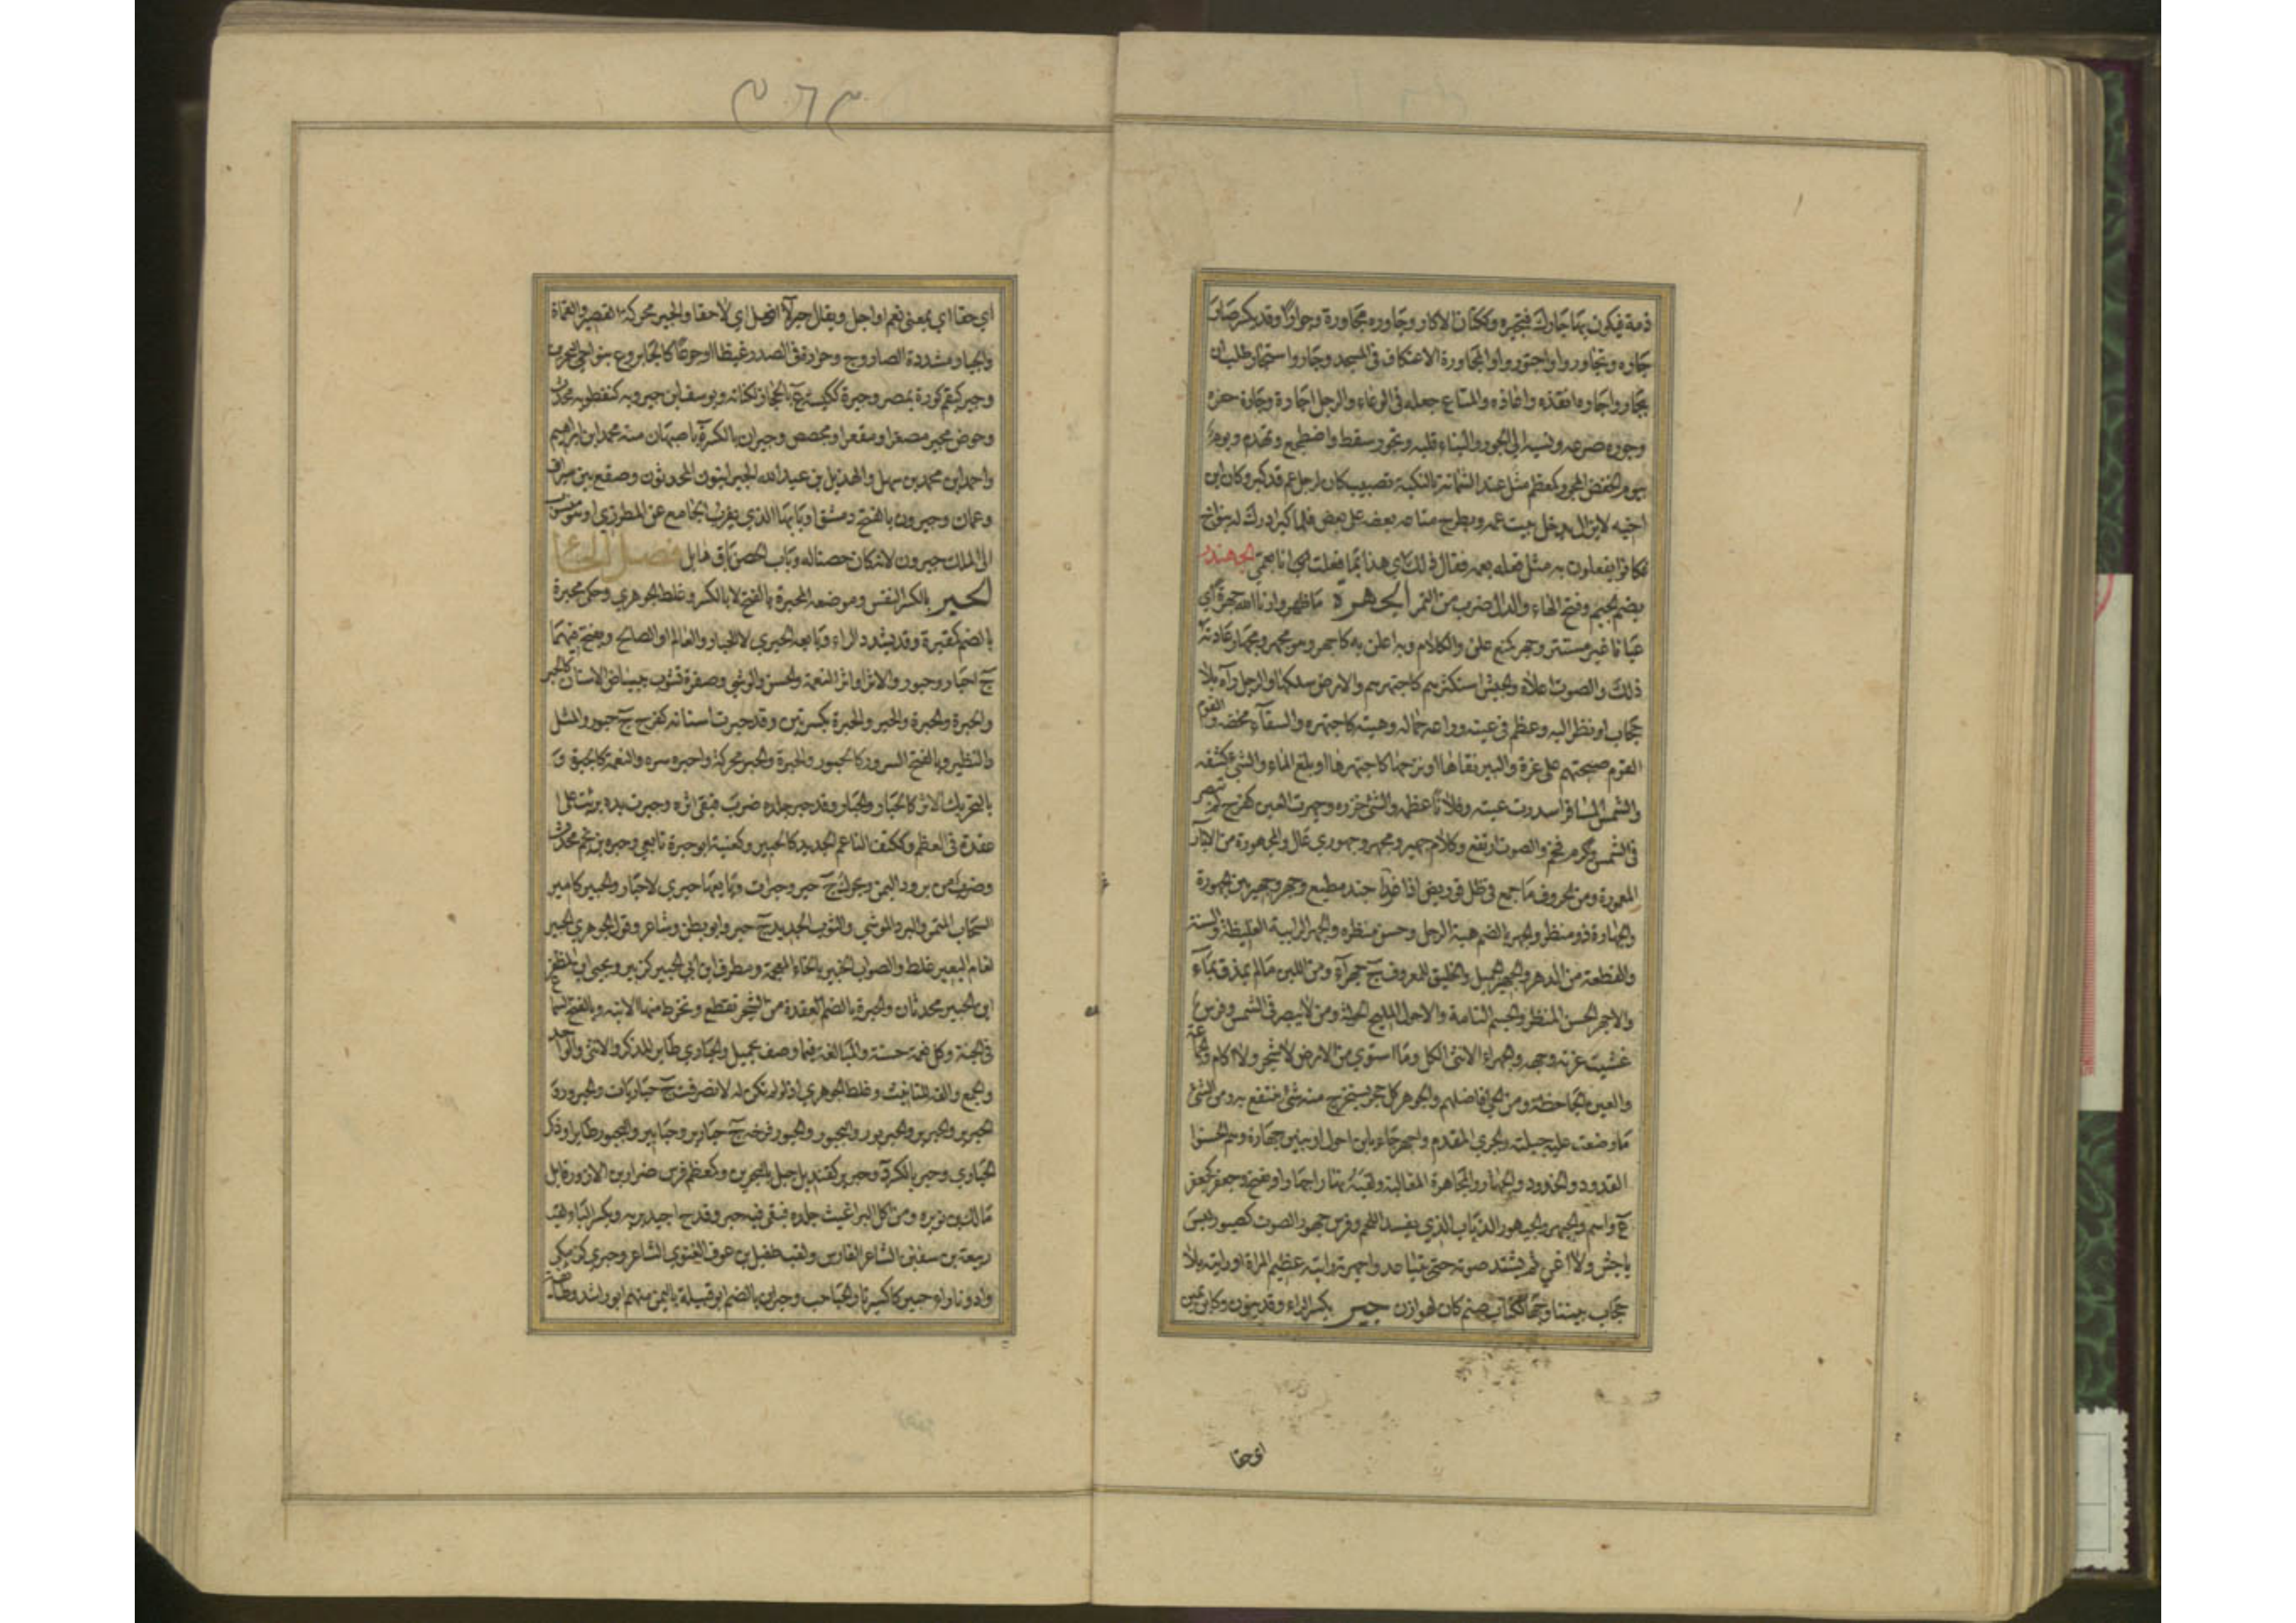 ذمة فيكون بها جارك فيجيره وككتان الاكار وجاوره مجاورة وجوارا وقد يكسر صار
جاره وتجاوروا واجتوروا والمجاورة الاعتكاف في المسجد وجار واستجار طلب ان
يجار واجاره انقذه واعاذه والمتاع جعله في الوعاء والرجل اجارة وجارة خفره
وجوره صرعه ونسبه الى الجور والبناء قلبه وتجور سقط واضطجع وتهدم ويوم
بيوم الحفض المجور كمعظم مثل عند الشماتة بالنكبة تصيب كان لرجل عم قد كبر وكان ابن
اخيه لا يزال يدخل بيت عمه ويطرح متاعه بعضه على بعض فلما كبر ادرك له بنو اخ
فكانوا يفعلون به مثل فعله بعمه فقال ذلك اي هذا بما فعلت انا بعمي الجهندر
بضم الجيم وفتح الهاء والدال ضرب من التمر الجهرة ما ظهر وارنا الله جهرة اي
عيانا غير مستتر وجهر كمنع علن والكلام وبه اعلن به كاجهر وهو مجهر ومجهار عادته
ذلك والصوت اعلاه والجيش استكثرهم كاجتهرهم والارض سلكها والرجل رآه بلا
حجاب او نظر اليه وعظم في عينه وراعه جماله وهيئته كاجتهره والسقاء مخضه والقوم
القوم صبحتهم على غرة والبير نقاها او نزحها كاجتهرها او بلغ الماء والشيء كشفه
والشمس المسافر اسدرت عينه وفلانا عظمه والشيء حزره وجهرت العين كفرح لم تبصر
في الشمس وككرم فخم والصوت ارتفع وكلام جهير ومجهر وجهوري عال والمجهورة من الابار
المعمورة ومن الحروف ما جمع في ظل قو ربض اذ غزا جند مطيع وجهر وجهير بين الجهورة
والجهارة ذو منظر والجهر بالضم هيئة الرجل وحسن منظره والجهر الرابية الغليظة والسنة
والقطعة من الدهر والجهير الجميل والخليق للمعروف ج جهراء ومن اللبن ما لم يمذق بماء
والاجهر الحسن المنظر والجسم التامة والاحول المليح الحولة ومن لا يبصر في الشمس وفرس
غشيت غرته وجهه والجهراء الانثى الكل وما استوى من الارض لا شجر ولا اكام والجماعة
والعين الجاحظة ومن الحي افاضلهم والجوهر كل حجر يستخرج منه شيء ينتفع به ومن الشيء
ما وضعت عليه جبلته والجري المقدم واجهر جاء بابن احول او ببنين جهارة وهم الحسنوا
القدود والخدود والجهار والمجاهرة المغالبة ولقيته نهارا جهارا ويفتح وجهور كجعفر
ع واسم والجيهر والجيهور الذباب الذي يفسد اللحم وفرس جهور الصوت كصبور ليس
باجش ولا اغن ثم يشتد صوته حتى يتباعد واجتهرته رايته عظيم المرآة او رايته بلا
حجاب بيننا وجهار ككتاب صنم كان لهوازن جير بكسر الراء وقد ينون وكاين يمين
اي حقا
٥٦٩
اي حقا اي بمعنى نعم او اجل ويقال جير لا افعل اي لا حقا والجير محركة القصر والقماءة
والجيار مشددة الصاروج وحرارة في الصدر غيظا او جوعا كالجائر وع بنواحي البحرين
وجير كبقم كورة بمصر وجيرة ككيسة ع بالحجاز لكنانة ويوسف ابن جيرويه كنفطويه محدث
وحوض مجير مصغرا ومقعرا ومجصص وجيران بالكسر ة باصبهان منه محمد ابن ابراهيم
واحمد ابن محمد بن سهل والهذيل بن عبيد الله الجيرانيون المحدثون وصقع بين سيراف
وعمان وجيرون بالفتح دمشق او بابها الذي بقرب الجامع عن المطرزي او منسوب
الى الملك جيرون لانه كان حصنا له وباب الحصن باق هايل فصل الحاء
الحبر بالكسر النقس وموضعه المحبرة بالفتح لا بالكسر وغلط الجوهري وحكى محبرة
بالضم كمقبرة وقد يشدد الراء وبايعه الحبري لا الحبار والعالم او الصالح ويفتح فيهما
ج احبار وحبور والاثر او اثر النعمة والحسن والوشي وصفرة تشوب بياض الاسنان كالحبر
والحبرة والحبرة والحبر والحبرة بكسرتين وقد حبرت اسنانه كفرح ج حبور والمثل
والنظير وبالفتح السرور كالحبور والحبرة والحبر محركة واحبره سره والنعمة كالحبرة و
بالتحريك الاثر كالحبار والحبار وقد حبر جلده ضرب فبقي اثره وحبرت يده برئت على
عقدة في العظم وككتف الناعم الجديد كالحبير وكعنبة ابو حبرة تابعي وحبرة بن نجم محدث
وضرب من برود اليمن ويحرك ج حبر وحبرات وبايعها حبري لا حبار والحبير كامير
السحاب المنمر والبرد الموشي والثوب الجديد ج حبر وابو بطن وشاعر وقول الجوهري الحبير
لغام البعير غلط والصواب الخبير بالخاء المعجمة ومطرف ابن ابي الحبير كزبير ويحيى ابن المظفر
ابن الحبير محدثان والحبرة بالضم العقدة من الشجر تقطع وتخرط منها الانية وبالفتح السماع
في الجنة وكل نغمة حسنة والمبالغة فيما وصف بجميل والحبارى طاير للذكر والانثى والواحد
والجمع والفه للتانيث وغلط الجوهري اذ لو لم تكن له لانصرفت ج حباريات والحبرور و
الحبرير والحبربر والحبربور واليحبور والحبور فرخه ج حبارير وحبابير واليحبور طاير او ذكر
الحبارى وحبر بالكسر د وحبرير كقنديل جبل بالبحرين وكمعظم فرس ضرار بن الازور قاتل
مالك بن نويرة ومن اكل البراغيث جلده فبقي فيه حبر وقدح اجيد بريه وبكسر الباء لقب
ربيعة بن سفين الشاعر الفارس ولقب طفيل بن عوف الغنوي الشاعر وحبرى كزمكى
واد ونار احبير كاكسير نار الحباحب وحبران بالضم ابو قبيلة باليمن منهم ابو راشد وطائفة